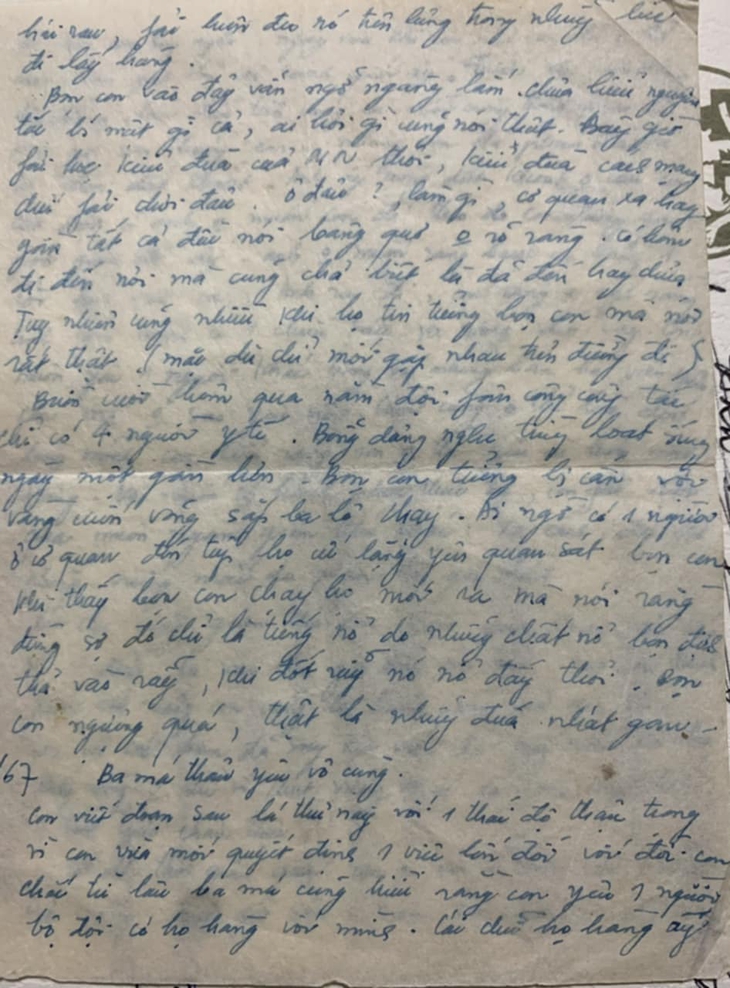 hái rau, fải luôn đeo nó trên lưng trong những lúc
đi lấy hàng.
Bọn con vào đây vẫn ngỡ ngàng lắm. chưa hiểu nguyên
tắc bí mật gì cả, ai hỏi gì cũng nói thật. Bây giờ
fải học kiểu đùa của thôi, kiểu đùa cách mạng
chứ fải chơi đâu. Ở đâu?, làm gì, cơ quan xa hay
gần tất cả đều nói bâng quơ 0 rõ ràng. có hôm
đi đến nơi mà cũng chả biết là đã đến hay chưa
Tuy nhiên cũng nhiều khi họ tin tưởng bọn con mà nói
rất thật (mặc dù chỉ mới gặp nhau trên đường đi)
Buổi cuối năm đội công tác
chỉ có 4 người y tế. Bỗng dưng nghe từng loạt súng
ngày một gần hơn. Bọn con tưởng bị càn vội
vàng cuốn võng sắp ba lô chạy. Ai ngờ có 1 người
ở cơ quan đến tiếp họ cứ lặng yên quan sát bọn con
khi thấy bọn con chạy họ mới ra mà nói rằng
đừng sợ đó chỉ là tiếng nổ do những chất nổ bọn địch
thả vào rẫy, khi đốt rẫy nó nổ đấy thôi. Bọn
con ngượng quá, thật là những đứa nhát gan -
/67 Ba má thân yêu vô cùng.
Con viết đoạn sau lá thư này với 1 thái độ thận trọng
vì con vừa mới quyết định 1 việc lớn đối với đời con
chắc từ lâu ba má cũng hiểu rằng con yêu 1 người
bộ đội có họ hàng với mình. Cái chữ họ hàng ấy